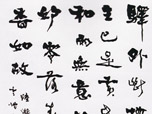 驛外斷
主已是黃
和雨無意
妒零落
香如故
陸游